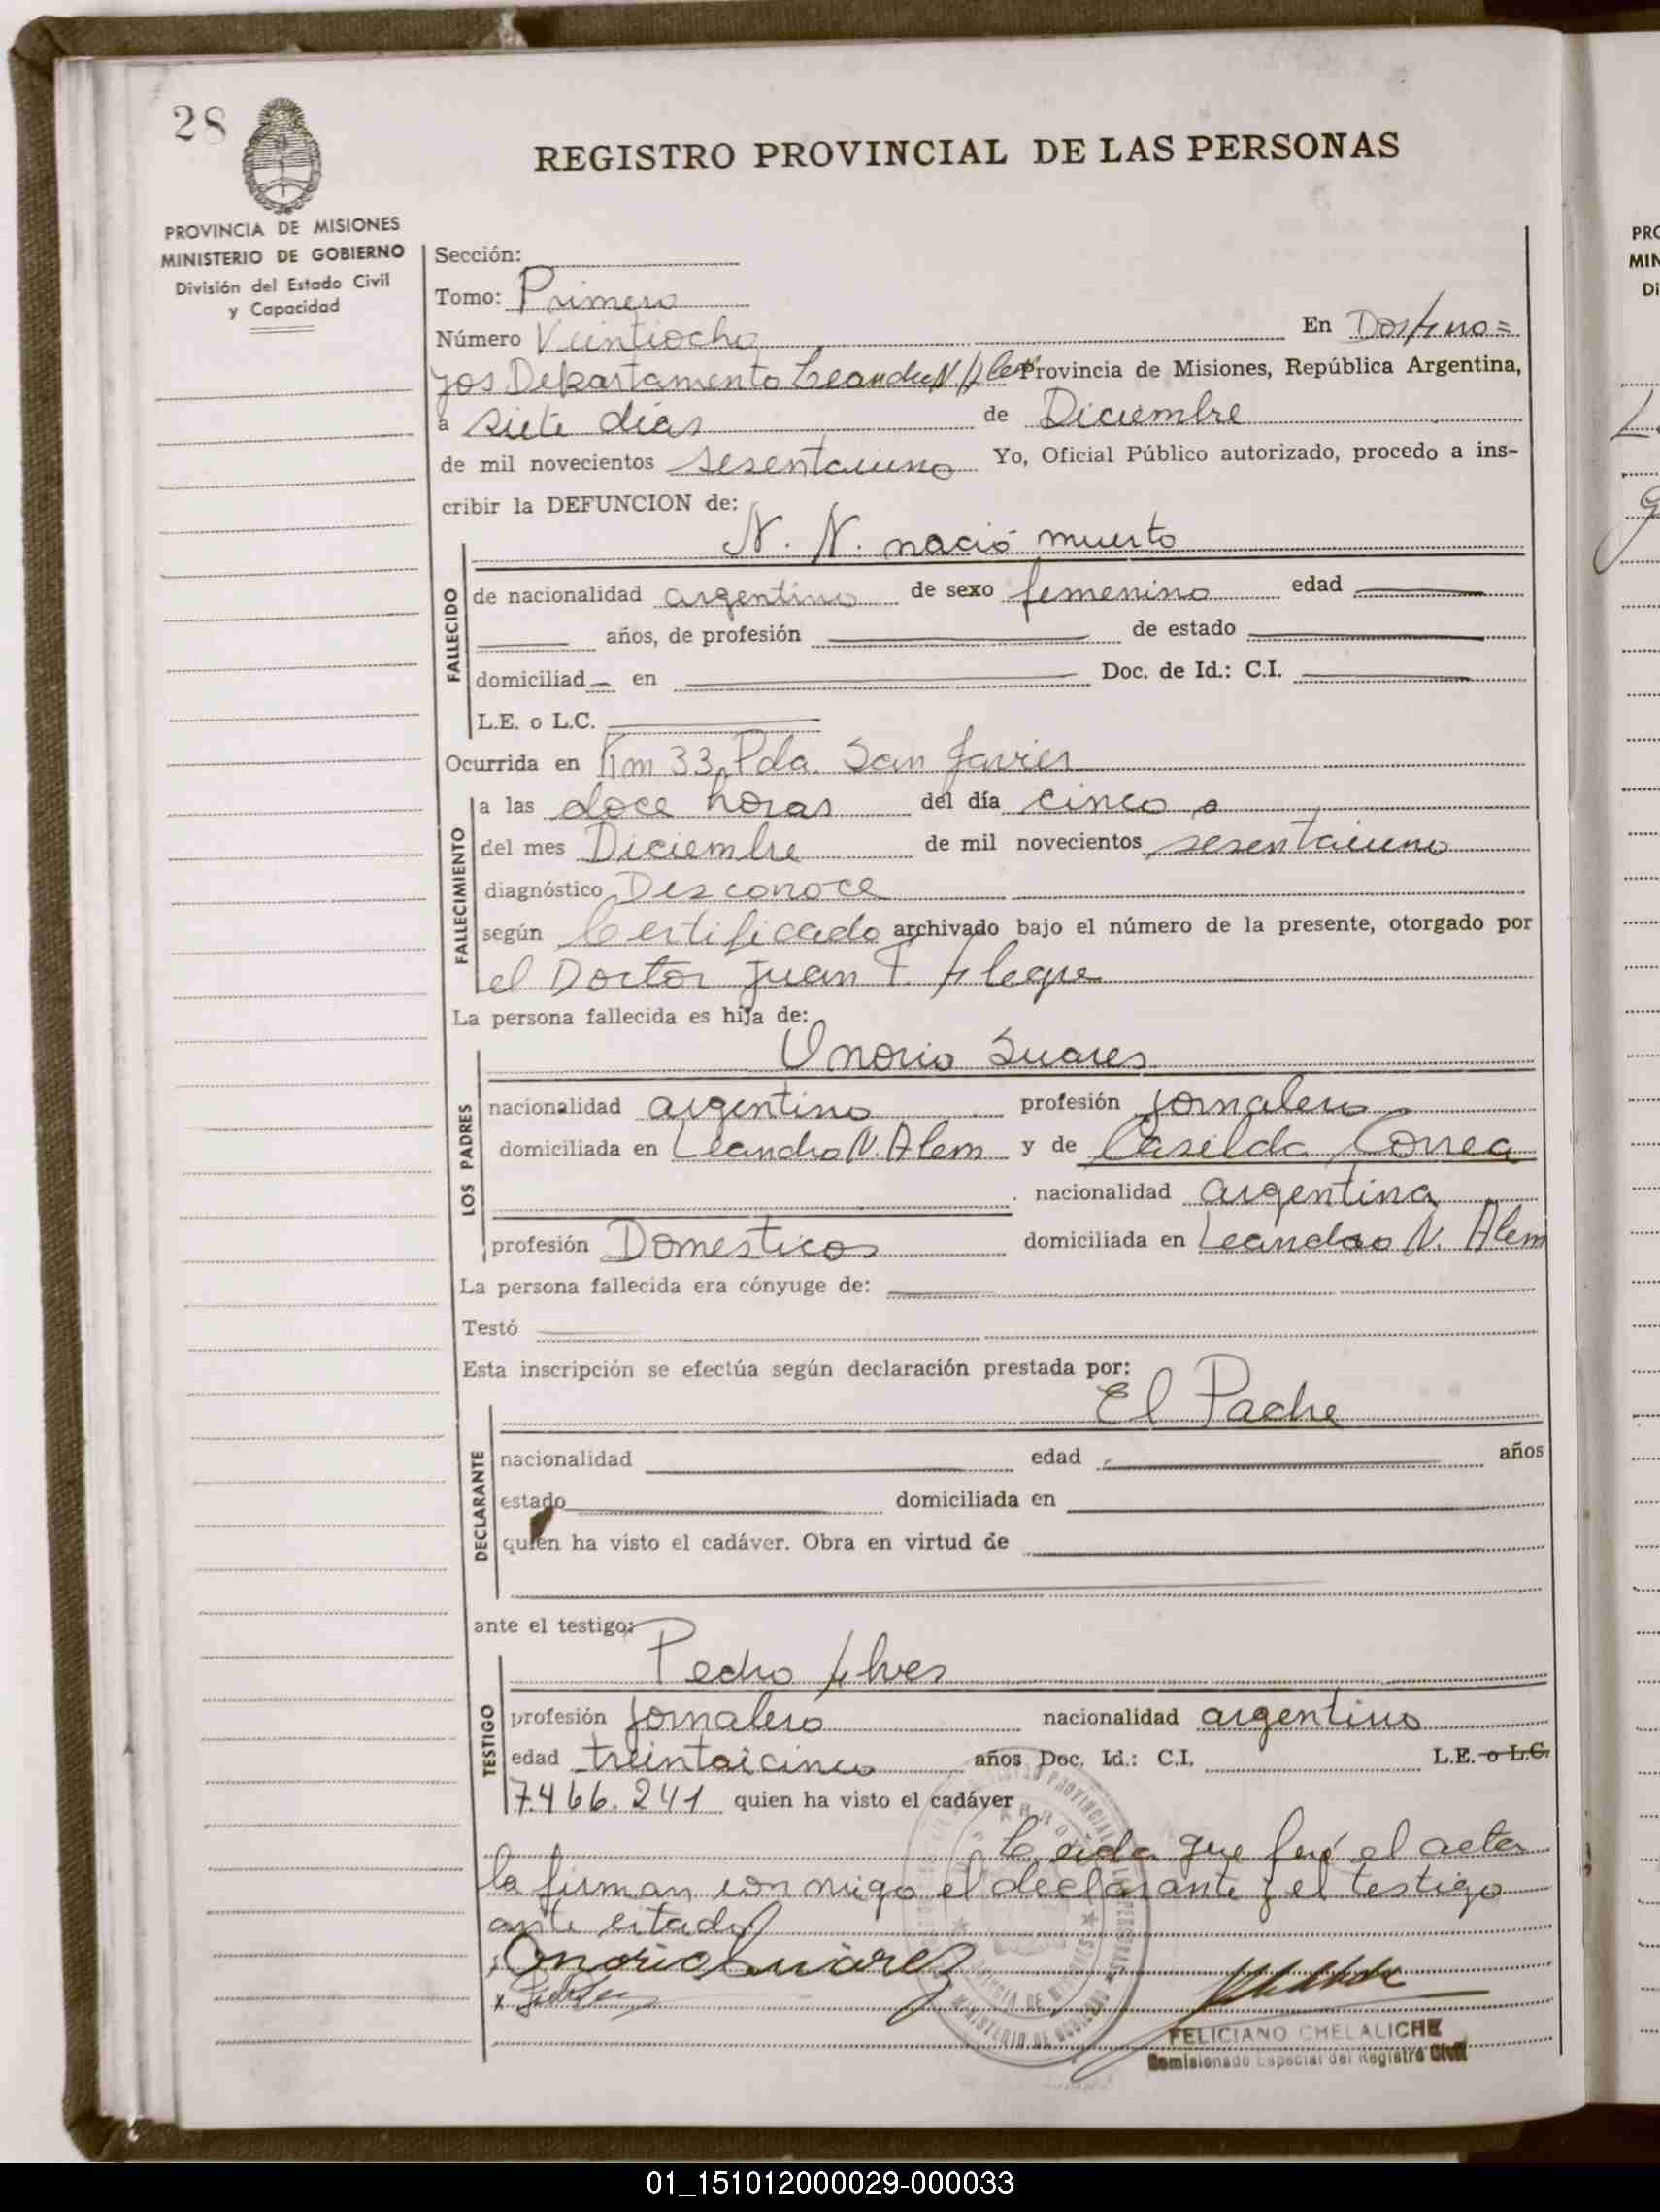 28
REGISTRO PROVINCIAL DE LAS PERSONAS
PROVINCIA DE MISIONES
MINISTERIO DE GOBIERNO
División del Estado Civil
y Capacidad
Sección:
Tomo: Primero
Número Veintiocho En Dos Arro=
yos Departamento Leandro N. Alem Provincia de Misiones, República Argentina,
a siete días de Diciembre
de mil novecientos sesentaiuno Yo, Oficial Público autorizado, procedo a ins-
cribir la DEFUNCION de:
N. N. nació muerto
FALLECIDO
de nacionalidad argentino de sexo femenino edad
años, de profesión de estado
domiciliad en Doc. de Id.: C.I.
L.E. o L.C.
Ocurrida en Km 33 Pda. San Javier
FALLECIMIENTO
a las doce horas del día cinco
del mes Diciembre de mil novecientos sesentaiuno
diagnóstico Desconoce
según Certificado archivado bajo el número de la presente, otorgado por
el Doctor Juan F. Alegre
La persona fallecida es hija de:
Onorio Suares
LOS PADRES
nacionalidad argentino profesión jornalero
domiciliada en Leandro N. Alem y de Casilda Correa
nacionalidad argentina
profesión Domesticos domiciliada en Leandro N. Alem
La persona fallecida era cónyuge de:
Testó
Esta inscripción se efectúa según declaración prestada por:
El Padre
DECLARANTE
nacionalidad edad años
estado domiciliada en
quien ha visto el cadáver. Obra en virtud de
ante el testigo:
Pedro Alves
TESTIGO
profesión jornalero nacionalidad argentino
edad treintaicinco años Doc. Id.: C.I. L.E. o L.C.
7.466.241 quien ha visto el cadáver
Leida que fué el acta
la firman conmigo el declarante y el testigo
ante citado
Onorio Suarez
FELICIANO CHELALICHE
Comisionado Especial del Registro Civil
01_151012000029-000033